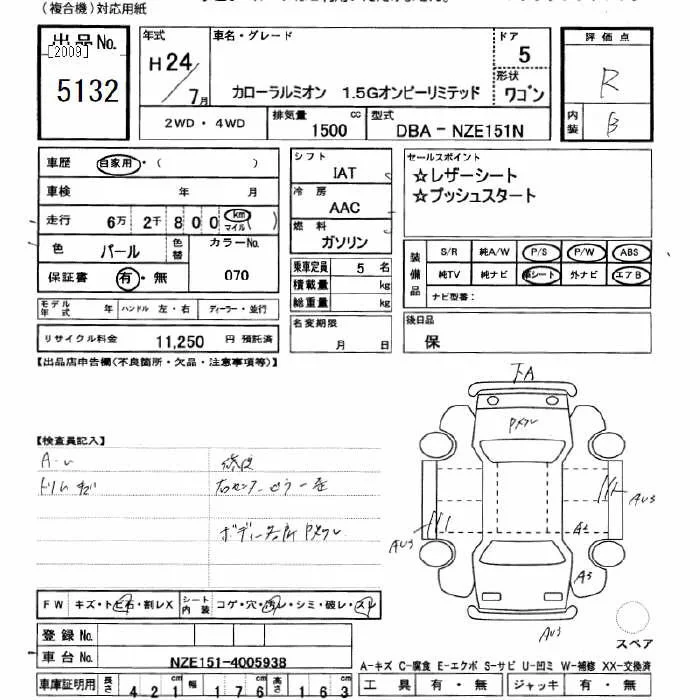 (複合機)対応用紙
出品No.
[2009]
5132
年式
H24/7月
車名・グレード
カローラルミオン 1.5Gオンビーリミテッド
ドア
5
形状
ワゴン
評価点
R
内装
B
2WD・4WD
排気量
1500 cc
型式
DBA－NZE151N
車歴 自家用・( )
車検 年 月
走行 6万 2千 800 km マイル
色 パール 色替 カラーNo.
保証書 有・無 070
シフト
IAT
冷房
AAC
燃料
ガソリン
乗車定員 5 名
積載量 kg
総重量 kg
セールスポイント
☆レザーシート
☆プッシュスタート
装備品
S/R 純A/W P/S P/W ABS
純TV 純ナビ 革シート 外ナビ エアB
ナビ型番:
モデル年式 年 ハンドル 左・右 ディーラー・並行
リサイクル料金 11,250 円 預託済
名変期限
月 日
後日品
保
【出品店申告欄(不良箇所・欠品・注意事項等)】
下A
Pメクレ
【検査員記入】
A-レ
トリムキズ
修復
ボディー各所 Pメクレ
AU3
AU3
A2
A3
AU3
FW キズ・トビ石・割レX シート内装 コゲ・穴・汚レ・シミ・破レ・スレ
登録No.
車台No. NZE151-4005938
スペア
A-キズ C-腐食 E-エクボ S-サビ U-凹ミ W-補修 XX-交換済
車庫証明用 長さ 421cm 幅 176cm 高さ 163cm
工具 有・無 ジャッキ 有・無